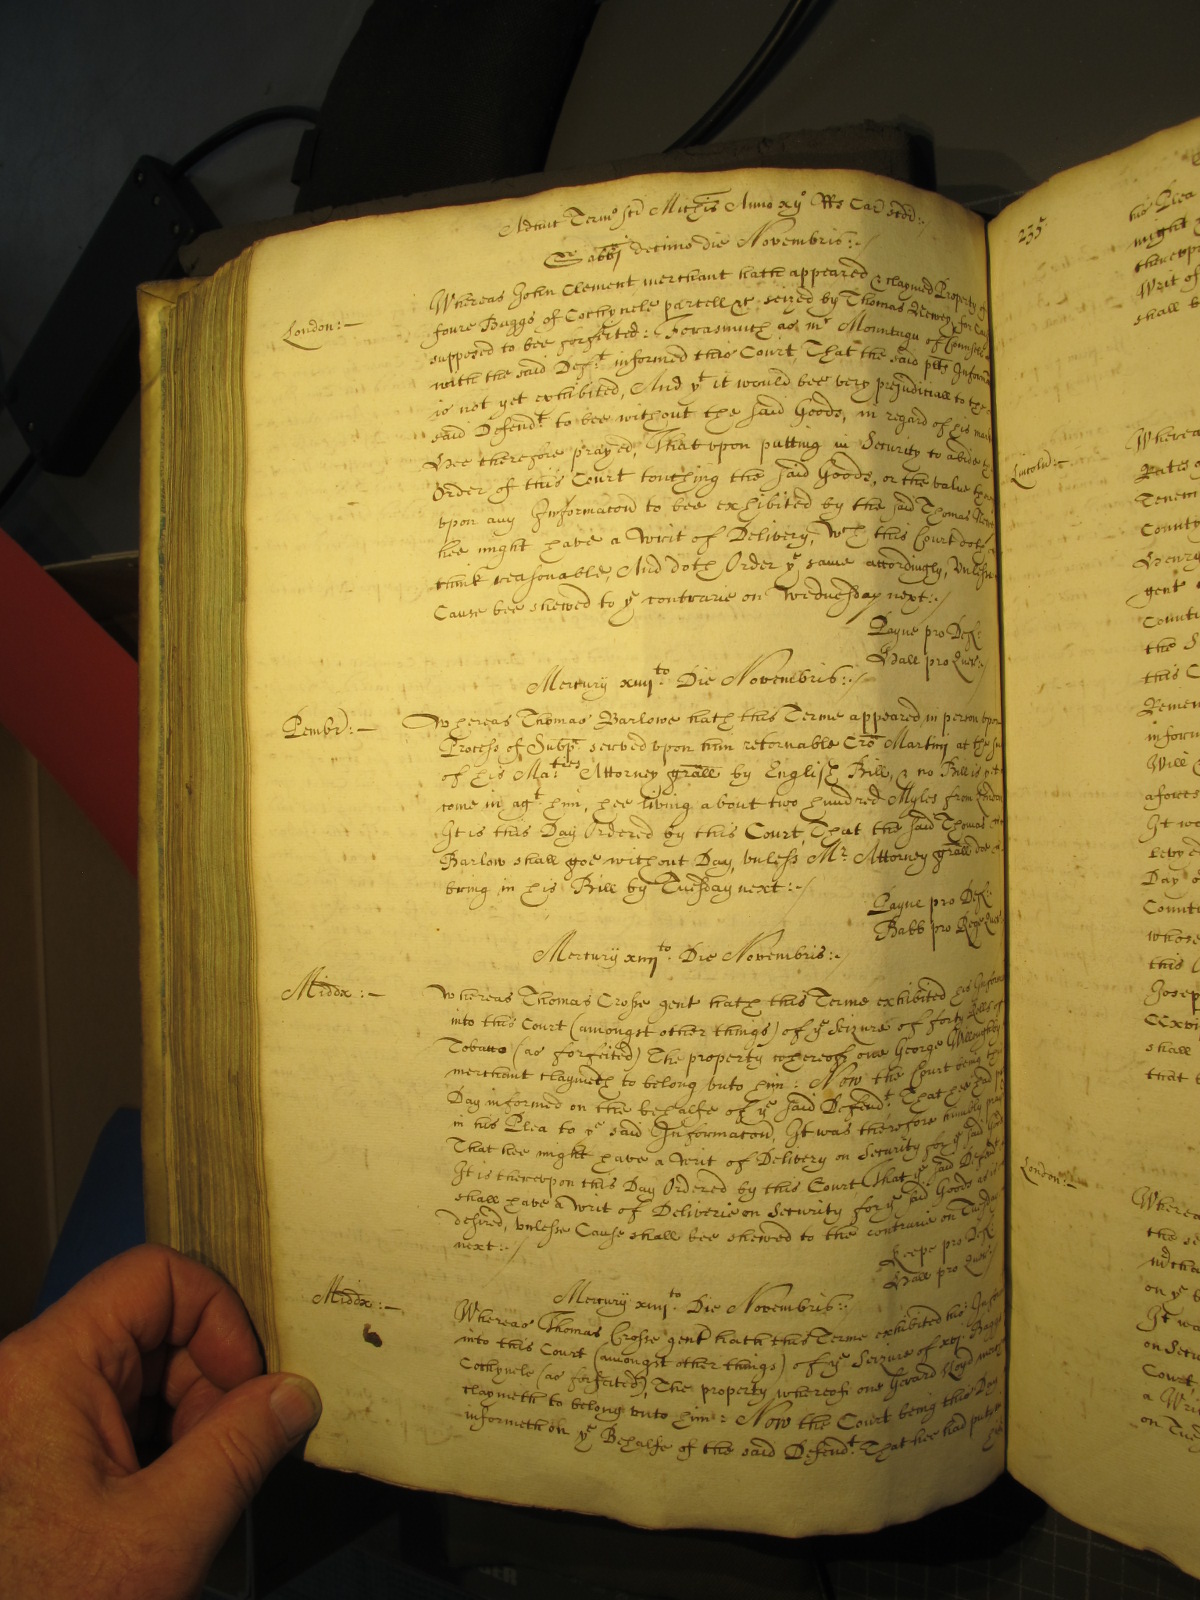 Adhuc Termo Sci Michis Anno xvo RRs Car scdi:
Sabbi decimo die Novembris:
London:
Whereas John Clement merchant hath appeared & claymed Property of
foure Baggs of Cochynele parcell &c seized by Thomas
supposed to bee forfeited: Forasmuch as mr Mountagu of Counsell
with the said Deft informed this Court, That the said plts Informa
is not yet exhibited, And yt it would bee very prejudiciall to the
said Defendt to bee without the said Goods, in regard of his
Hee therefore prayed, That vpon putting in Security to abide the
Order of this Court touching the said Goods, or the value
vpon any Informacon to bee exhibited by the said Thomas
hee might have a Writ of Delivery, Wch this Court doth
think reasonable, And doth Order ye same accordingly, Vnlesse
Cause bee shewed to ye contrarie on Wednesday next:
Payne pro Def:
Hall pro Quer:
Mercury xiiijto Die Novembris:
Pembr:
Whereas Thomas Barlowe hath this Terme appeared in person vpon
Process of Subp served vpon him retornable Cro Martini at the su
of his Maties Attorney grall by English Bill, & no Bill is yet
come in agt him, hee living about two hundred Myles from London
It is this Day Ordered by this Court, That the said Thomas
Barlow shall goe without Day, vnless Mr Attorney grall doe
bring in his Bill by Tuesday next:
Payne pro Def:
Babb pro Rege Quer
Mercurij xiiijto Die Novembris:
Middx:
Whereas Thomas Crosse gent hath this Terme exhibited his Inform
into this Court (amongst other things) of ye Seizure of forty Rolls of
Tobacco (as forfeited) The property whereof one George Willoughby
merchant claymeth to belong vnto him: Now the Court being this
Day informed on the behalfe of ye said Defendt That hee had put
in his Plea to ye said Informacon, It was therefore humbly pray
That hee might have a Writ of Delivery on Security for ye said Goods
It is therevpon this Day Ordered by this Court That ye said Defendt
shall have a Writ of Deliverie on Security for ye said Goods as is
desired, vnlesse Cause shall bee shewed to the contrarie on Tuesday
next:
Keepe pro Def:
Hall pro Quer:
Mercurij xiiijto Die Novembris:
Middx:
Whereas Thomas Crosse gent hath this Terme exhibited his Inform
into this Court (amongst other things) of ye Seizure of xvj Baggs
Cochynele (as forfeited), The property whereof one Gerard Lloyd merch
claymeth to belong vnto him: Now the Court being this Day
informeth on ye Behalfe of the said Defendt That hee had put in
his
235
his Plea
might
therevpo
Writ of
shall b
Lincoln:
Wherea
Rates o
Tenem
County
Henry
gent
Counti
the S
this C
Remem
inform
Will
afores
It wa
Levyed
Day o
Count
whose
this
Josep
CCxvi
shall
that
London:
Wherea
the se
on ye
It wa
on Secu
Court
a Wri
on Tue